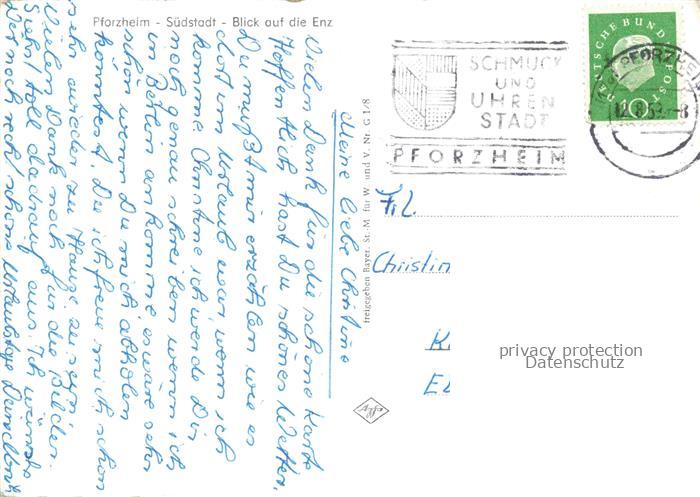 Pforzheim - Südstadt - Blick auf die Enz
SCHMUCK
UND
UHREN
STADT
PFORZHEIM
DEUTSCHE BUNDESPOST
PFORZHEIM
freigegeben Bayer. St.-M. für W. und V. Nr. G 1/8
Meine liebe Christine
Vielen Dank für die schöne Karte
Hoffentlich hast Du schönes Wetter.
Du mußt mir erzählen wie es
dort im Urlaub war wenn ich
komme Christine ich werde Dir
noch genau schreiben wenn ich
in Berlin ankomme es wäre sehr
schön wenn Du mich abholen
könntest. Du ich freue mich schon
sehr wieder zu Hause zu sein.
Vielen Dank noch für die Bilder.
Siehst toll darauf aus. Ich wünsche
Dir noch recht schöne Urlaubstage
Frl.
Christin
K
privacy protection
Datenschutz